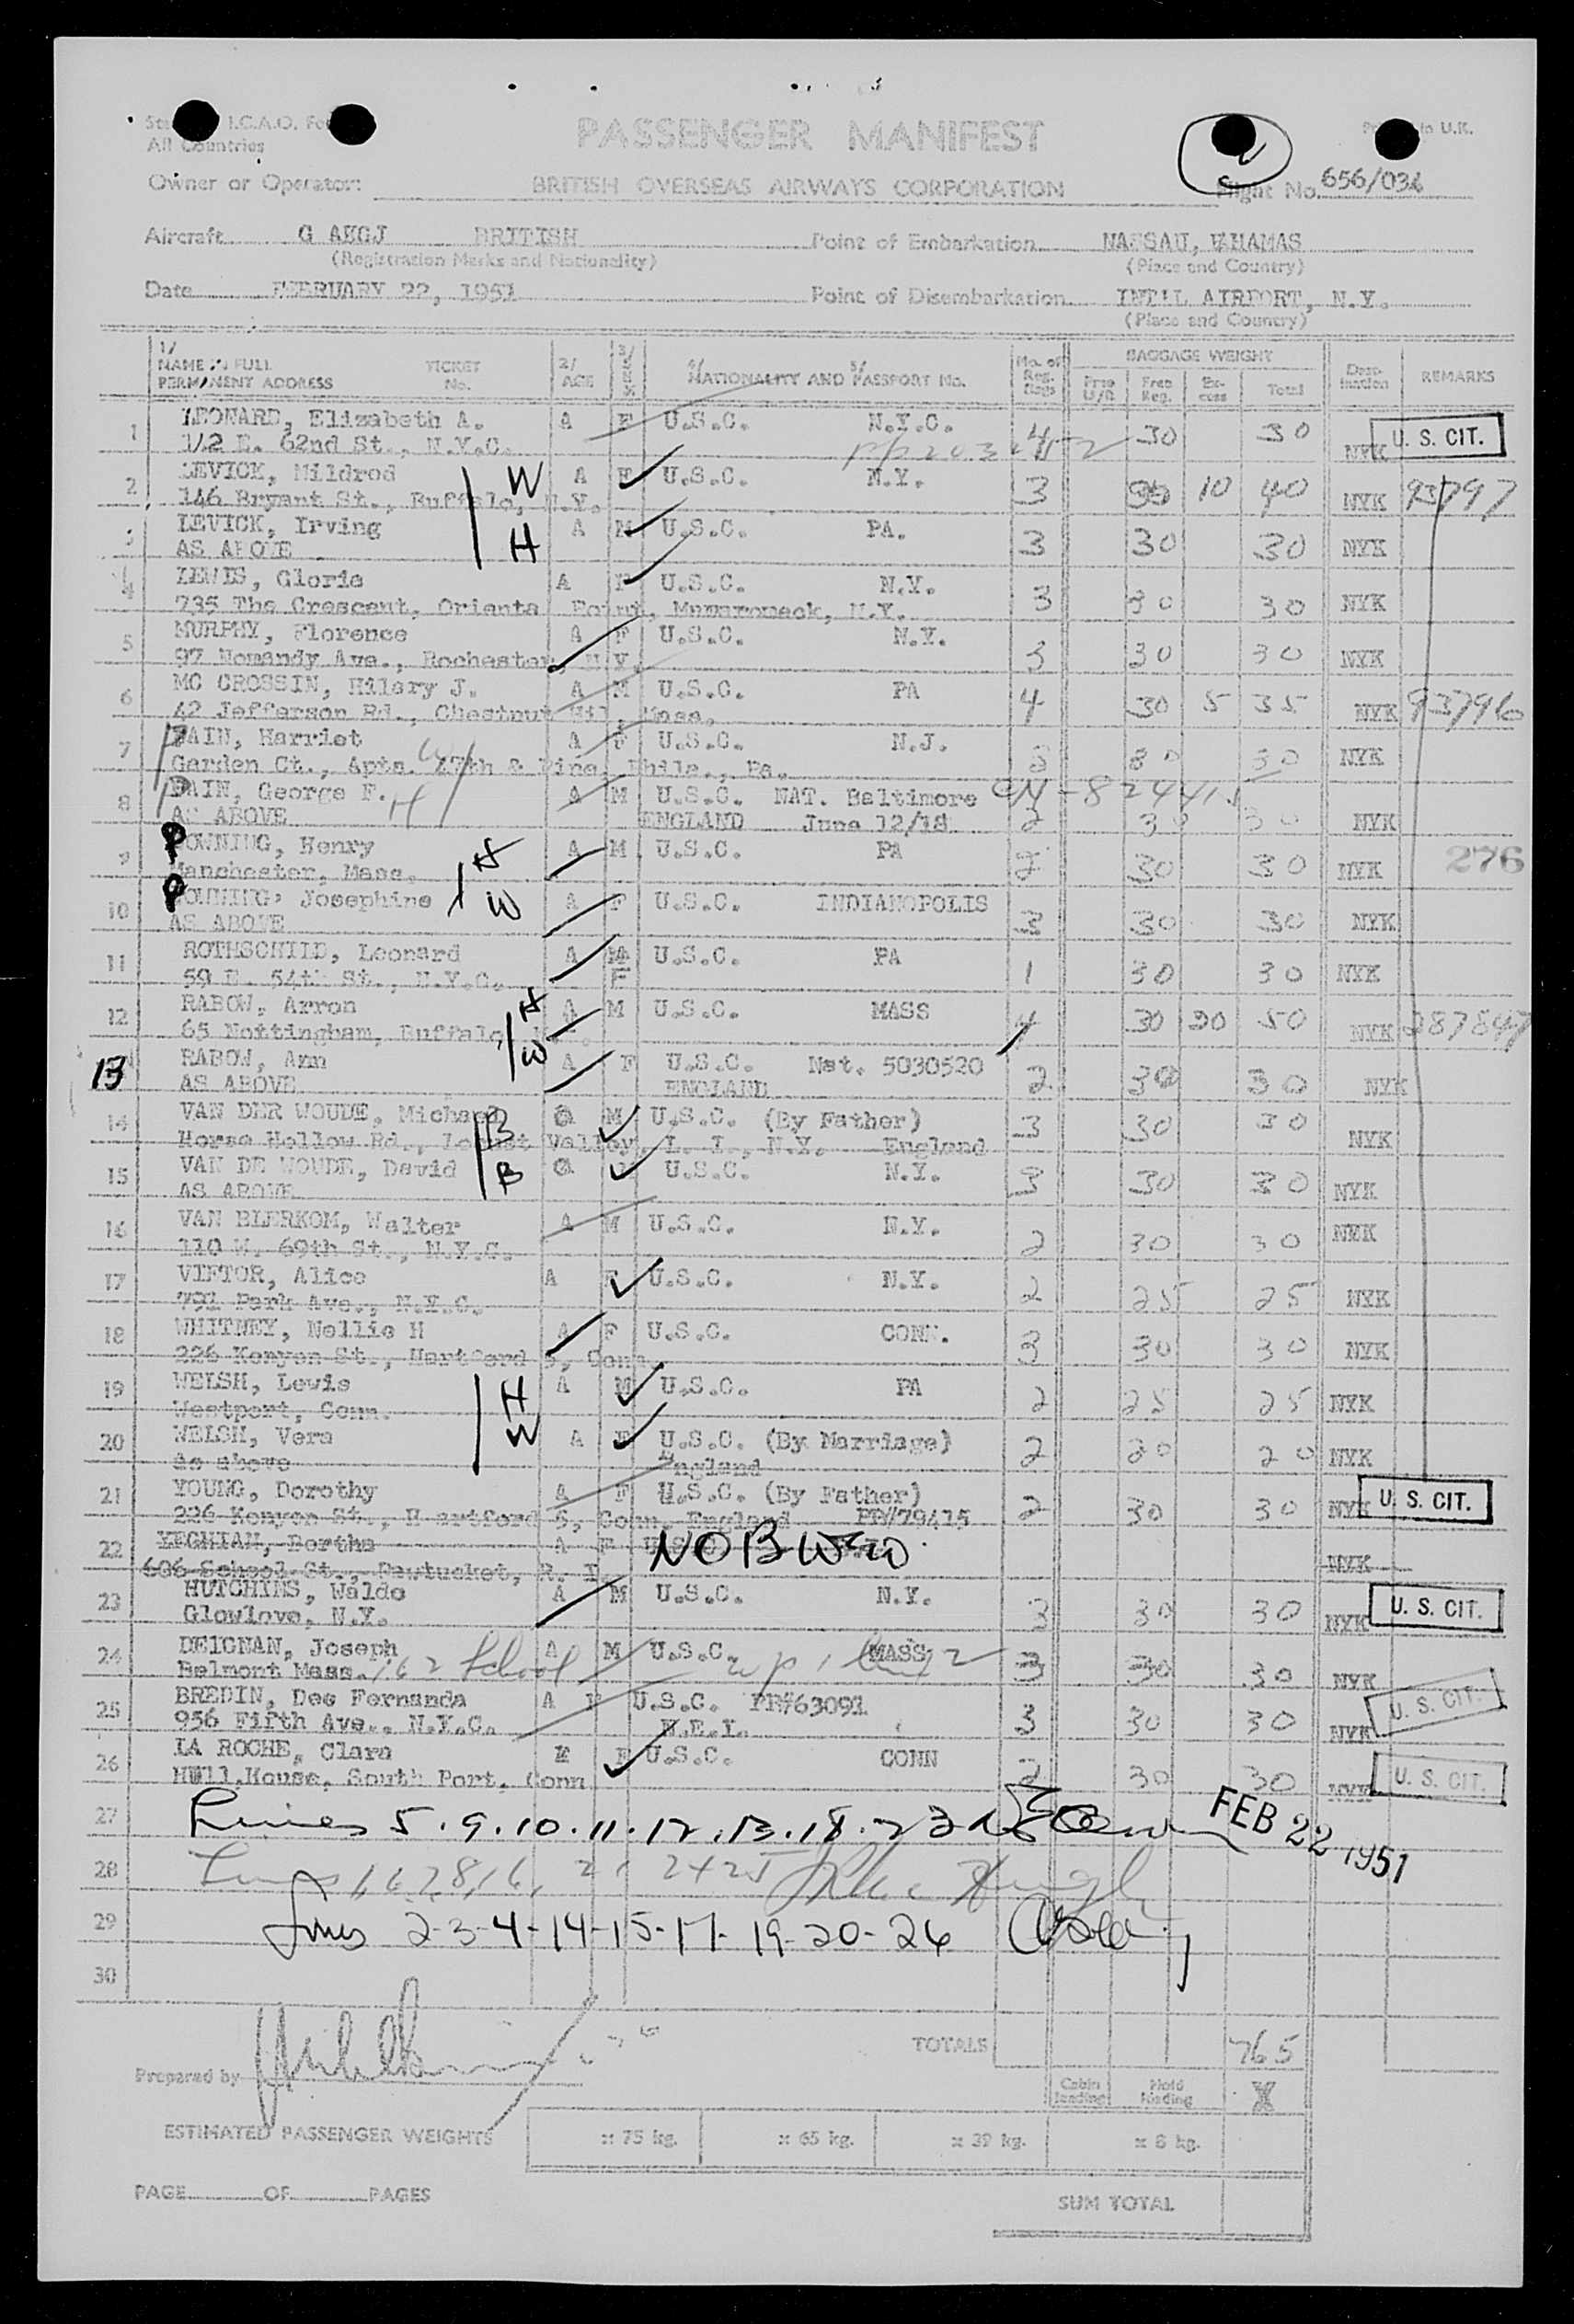 I.C.A.O.
All Countries
PASSENGER MANIFEST
in U.K.
Owner or Operator: BRITISH OVERSEAS AIRWAYS CORPORATION Flight No. 656/034
Aircraft G AKGJ BRITISH Point of Embarkation NASSAU, BAHAMAS
(Registration Marks and Nationality) (Place and Country)
Date FEBRUARY 22, 1951 Point of Disembarkation INT'L AIRPORT, N.Y.
(Place and Country)
1/ NAME IN FULL TICKET 2/ 3/ 4/ 5/ No. of BAGGAGE WEIGHT Dest- REMARKS
PERMANENT ADDRESS No. AGE SEX NATIONALITY AND PASSPORT No. Reg. Bags Free U/R Free Reg. Ex- cess Total ination
1 LEONARD, Elizabeth A. A F U.S.C. N.Y.C. 4 30 30 NYK U. S. CIT.
112 E. 62nd St., N.Y.C.
2 LEVICK, Mildred W A F U.S.C. N.Y. 3 30 10 40 NYK 93797
146 Bryant St., Buffalo, N.Y.
3 LEVICK, Irving H A M U.S.C. PA. 3 30 30 NYK
AS ABOVE
4 LEWIS, Gloria A F U.S.C. N.Y. 3 30 30 NYK
735 The Crescent, Orienta Point, Mamaroneck, N.Y.
5 MURPHY, Florence A F U.S.C. N.Y. 3 30 30 NYK
97 Nomandy Ave., Rochester, N.Y.
6 MC CROSSIN, Hilary J. A M U.S.C. PA 4 30 5 35 NYK 93796
42 Jefferson Rd., Chestnut Hil, Mass.
7 PAIN, Harriet W A F U.S.C. N.J. 3 30 30 NYK
Garden Ct., Apts. 47th & Pine, Phila., Pa.
8 PAIN, George F. H A M U.S.C. NAT. Baltimore 2 30 30 NYK
AS ABOVE ENGLAND June 12/18
9 POWNING, Henry H A M U.S.C. PA 2 30 30 NYK 276
Manchester, Mass.
10 POWNING, Josephine W A F U.S.C. INDIANOPOLIS 3 30 30 NYK
AS ABOVE
11 ROTHSCHILD, Leonard A F U.S.C. PA 1 30 30 NYK
59 E. 54th St., N.Y.C.
12 RABOW, Arron H A M U.S.C. MASS 4 30 20 50 NYK 287847
65 Nottingham, Buffalo
13 RABOW, Ann W A F U.S.C. Nat. 5030520 2 30 30 NYK
AS ABOVE ENGLAND
14 VAN DER WOUDE, Michael B M U.S.C. (By Father) 3 30 30 NYK
Horse Hollow Rd., Locust Valley, L. I., N.Y. England
15 VAN DE WOUDE, David B U.S.C. N.Y. 3 30 30 NYK
AS ABOVE
16 VAN BLERKOM, Walter A M U.S.C. N.Y. 2 30 30 NYK
110 W. 69th St., N.Y.C.
17 VIETOR, Alice A F U.S.C. N.Y. 2 25 25 NYK
791 Park Ave., N.Y.C.
18 WHITNEY, Nellie H A F U.S.C. CONN. 3 30 30 NYK
226 Kenyon St., Hartford 5, Conn.
19 WELSH, Lewis H A M U.S.C. PA 2 25 25 NYK
Westport, Conn.
20 WELSH, Vera W A F U.S.C. (By Marriage) 2 20 20 NYK
As above England
21 YOUNG, Dorothy A F U.S.C. (By Father) 2 30 30 NYK U. S. CIT.
226 Kenyon St., H artford 5, Conn. England PP#79415
22 YEGHIAN, Bertha A F NO B NYK
606 School St., Pawtucket, R. I.
23 HUTCHINS, Waldo A M U.S.C. N.Y. 3 30 30 NYK U. S. CIT.
Glowlove, N.Y.
24 DEIGNAN, Joseph A M U.S.C. MASS 3 30 30 NYK
Belmont Mass. 162 School
25 BREDIN, Dee Fernanda A F U.S.C. PP#63091 3 30 30 NYK U. S. CIT.
956 Fifth Ave., N.Y.C. B.E.I.
26 LA ROCHE, Clara F U.S.C. CONN 2 30 30 NYK U. S. CIT.
HULL House, South Port, Conn
27 Lines 5.9.10.11.12.13.18.23 FEB 22 1951
28 Lines
29 Lines 2-3-4-14-15-17-19-20-26
30
TOTALS 765
Prepared by
Cabin loading Hold loading
ESTIMATED PASSENGER WEIGHTS x 75 kg. x 65 kg. x 39 kg. x 8 kg.
PAGE OF PAGES
SUM TOTAL